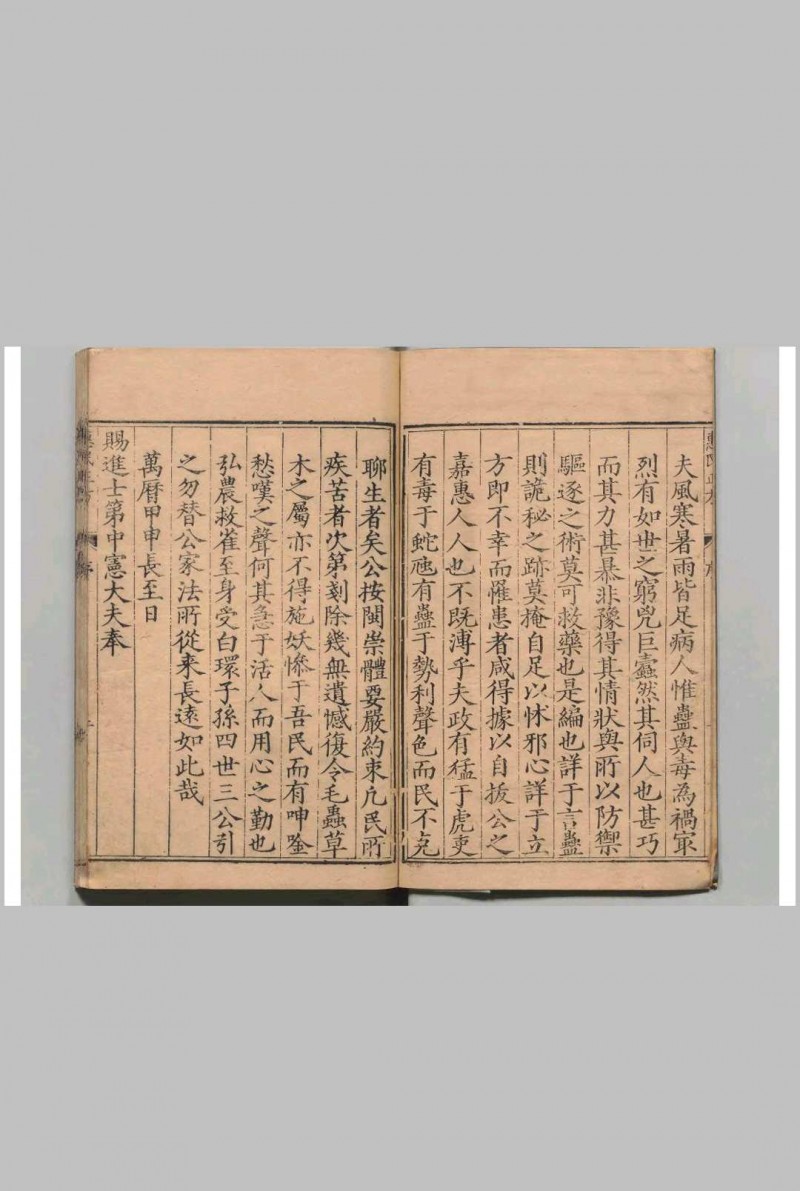 夫風寒暑雨皆足病人惟蠱與毒為禍冣
烈有如世之窮兇巨蠹然其伺人也甚巧
而其力甚暴非豫得其情狀與所以防禦
驅逐之術莫可救藥也是編也詳于言蠱
則詭秘之跡莫掩自足以怵邪心詳于立
方即不幸而罹患者咸得據以自拔公之
嘉惠人人也不既溥乎夫政有猛于虎吏
有毒于蛇虺有蠱于勢利聲色而民不克
聊生者矣公按閩崇體要嚴約束凡民所
疾苦者次第剗除幾無遺憾復令毛蟲草
木之屬亦不得施妖慘于吾民而有呻唫
愁嘆之聲何其急于活人而用心之勤也
弘農救雀至身受白環子孫四世三公引
之勿替公家法所從来長遠如此哉
萬曆甲申長至日
賜進士第中憲大夫奉